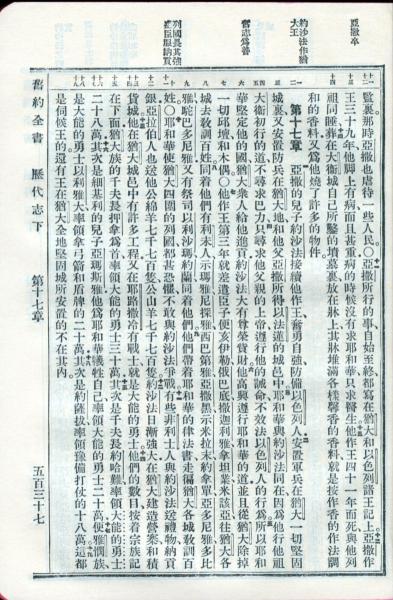 亞撒卒
約沙法作猶
大王
奮志爲善
列國畏其強
遣臣服納貢
監裏那時亞撒也虐待一些人民○亞撒所行的事自始至終都寫在猶大和以色列諸王記上亞撒作
王三十九年他脚上有病而且甚重病的時候沒有求耶和華只求醫生他作王四十一年而死與他列
祖同睡葬在大衞城自己所鑿的墳墓裏放在牀上其牀堆滿各樣馨香的香料就是按作香的作法調
和的香料又爲他燒了許多的物件
第十七章 亞撒的兒子約沙法接續他作王奮勇自強防備以色列人安置軍兵在猶大一切堅固
城裏又安置防兵在猶大地和他父亞撒所得以法蓮的城邑中耶和華與約沙法同在因爲他行他祖
大衞初行的道不尋求巴力只尋求他父親的上帝遵行他的誡命不效法以色列人的行爲所以耶和
華堅定他的國猶大衆人給他進貢約沙法大有尊榮貲財他高興遵行耶和華的道並且從猶大除掉
一切邱壇和木偶○他作王第三年就差遣臣子便亥伊勒俄巴底撒迦利雅拿坦業米該亞往猶大各
城去敎訓百姓同着他們有利未人示瑪雅尼探雅西巴第雅亞撒黑示米拉末約拿單亞多尼雅多比
雅駝巴多尼雅又有祭司以利沙瑪約蘭同着他們他們帶着耶和華的律法書走徧猶大各城敎訓百
姓○耶和華使猶大四圍的列國都甚恐懼不敢與約沙法爭戰有些非利士人與約沙法送禮物納貢
銀亞拉伯人也送他公綿羊七千七百隻公山羊七千七百隻約沙法日漸強大在猶大建造營寨和積
貨城他在猶大城邑中有許多工程又在耶路撒冷有戰士就是大能的勇士他們的數目按着宗族記
在下面猶大族的千夫長押拿爲首率領大能的勇士三十萬其次是千夫長約哈難率領大能的勇士
二十八萬其次是細基利的兒子亞瑪斯雅他爲耶和華犧牲自己率領大能的勇士二十萬便雅憫族
是大能的勇士以利雅大率領拿弓箭和盾牌的二十萬其次是約薩拔率領豫備打仗的十八萬這都
是伺候王的還有王在猶大全地堅固城所安置的不在其內
舊約全書 歷代志下 第十七章 五百三十七